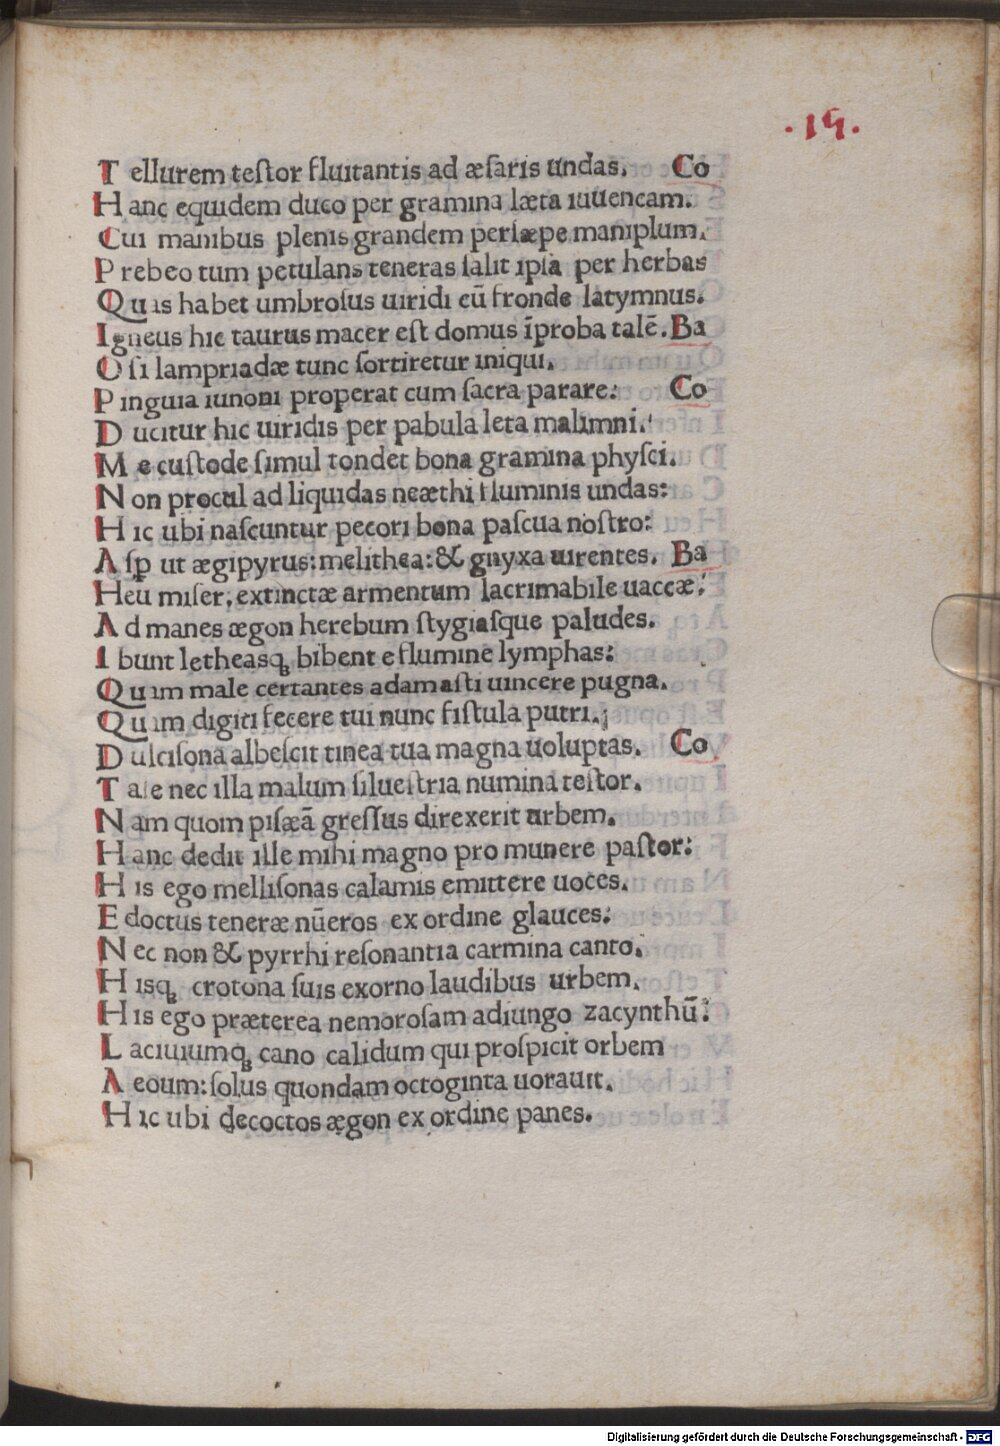 ·15·
T ellurem teſtor fluitantis ad æſaris undas. Co
H anc equidem duco per gramina læta iuuencam.
Cui manibus plenis grandem perſæpe maniplum.
P rebeo tum petulans teneras ſalit ipſa per herbas
Qu is habet umbroſus uiridi cū fronde latymnus.
Igneus hic taurus macer eſt domus īproba talē. Ba
O ſi lampriadæ tunc ſortiretur iniqui.
P inguia iunoni properat cum ſacra parare: Co
D ucitur hic uiridis per pabula leta malimni.
M e cuſtode ſimul tondet bona gramina phyſci.
N on procul ad liquidas neæthi fluminis undas:
H ic ubi naſcuntur pecori bona paſcua noſtro:
A ſꝑ ut ægipyrus: melithea: & gnyxa uirentes. Ba
Heu miſer, extinctæ armentum lacrimabile uaccæ:
A d manes ægon herebum ſtygiaſque paludes.
I bunt letheasqꝫ bibent e flumine lymphas:
Qu am male certantes adamaſti uincere pugna.
Qu am digiti fecere tui nunc fiſtula putri.
D ulciſona albeſcit tinea tua magna uoluptas. Co
T ale nec illa malum ſilueſtria numina teſtor.
N am quom piſæā greſſus direxerit urbem.
H anc dedit ille mihi magno pro munere paſtor:
H is ego melliſonas calamis emittere uoces.
E doctus teneræ nūeros ex ordine glauces:
N ec non & pyrrhi reſonantia carmina canto.
H isqꝫ crotona ſuis exorno laudibus urbem.
H is ego præterea nemoroſam adiungo zacynthū:
L aciuiumqꝫ cano calidum qui proſpicit orbem
A eoum: ſolus quondam octoginta uorauit.
H ic ubi decoctos ægon ex ordine panes.
Digitalisierung gefördert durch die Deutsche Forschungsgemeinschaft - DFG